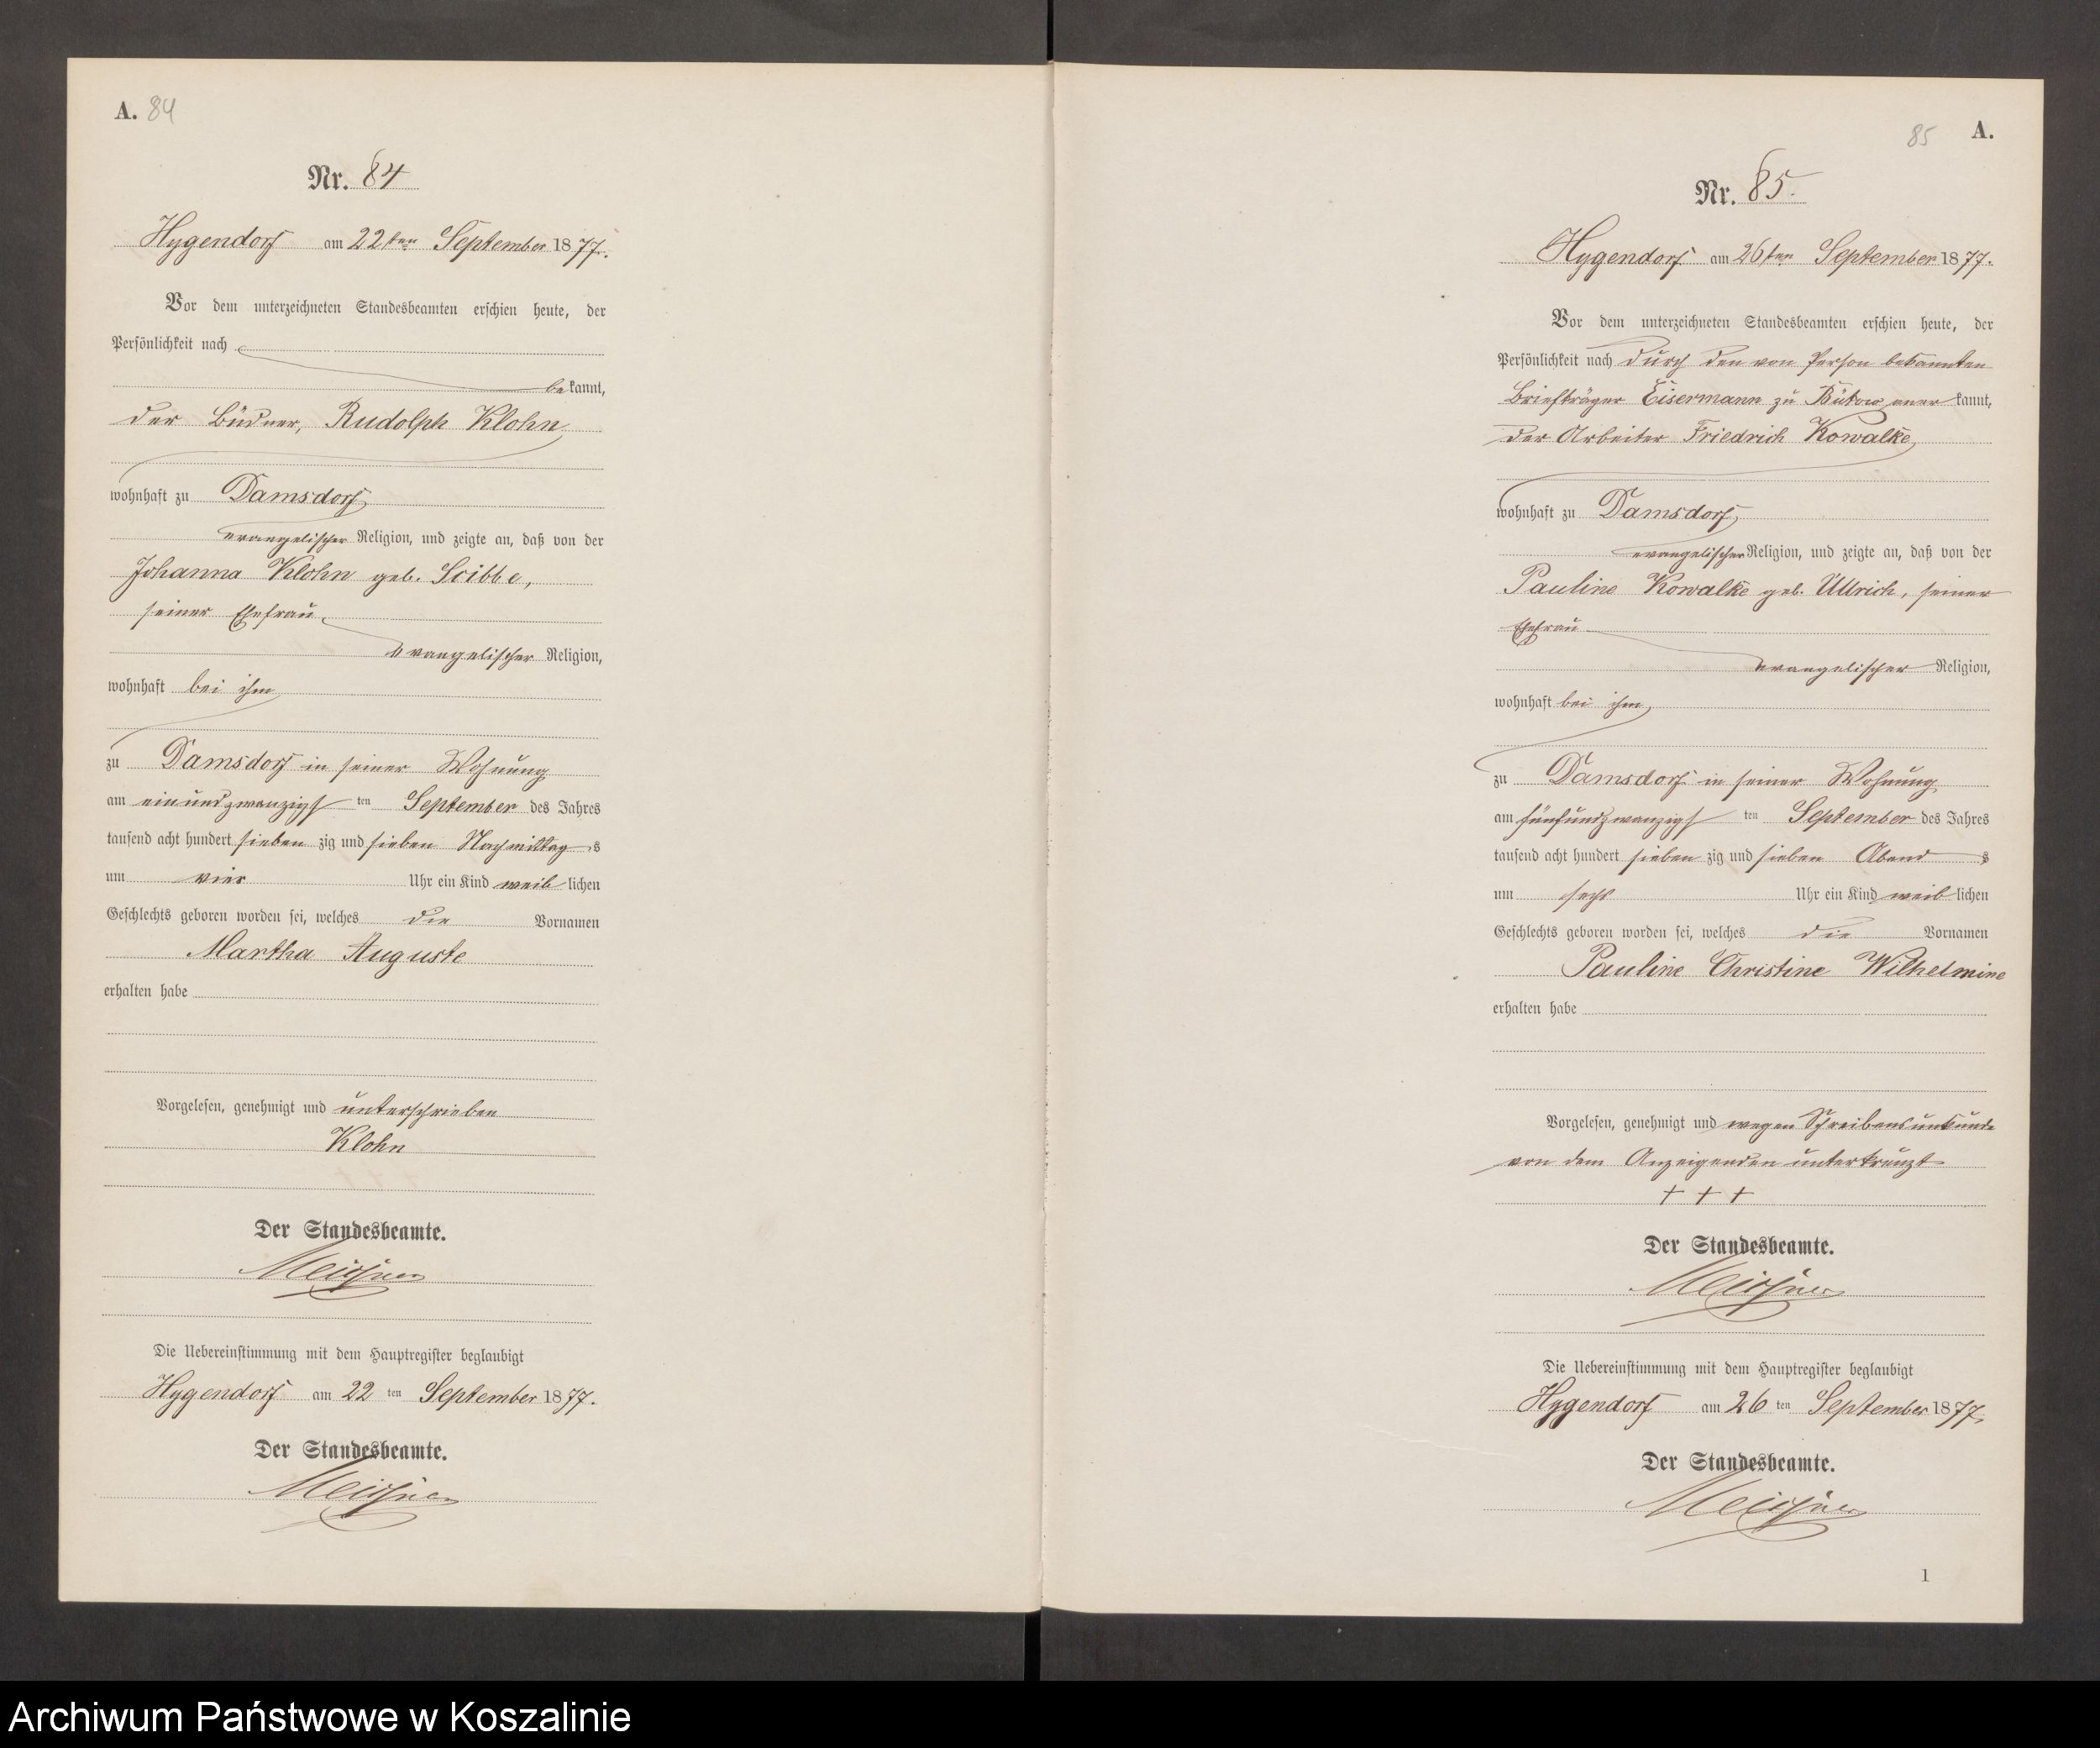 A. 84
Nr. 84
Hygendorf am 22ten September 1877.
Vor dem unterzeichneten Standesbeamten erschien heute, der
Persönlichkeit nach
bekannt,
der Büdner, Rudolph Klohn
wohnhaft zu Damsdorf,
evangelischer Religion, und zeigte an, daß von der
Johanna Klohn geb. Scibbe,
seiner Ehefrau
evangelischer Religion,
wohnhaft bei ihm
zu Damsdorf in seiner Wohnung
am einundzwanzigsten September des Jahres
tausend acht hundert siebenzig und sieben Nachmittags
um vier Uhr ein Kind weiblichen
Geschlechts geboren worden sei, welches die Vornamen
Martha Auguste
erhalten habe
Vorgelesen, genehmigt und unterschrieben
Klohn
Der Standesbeamte.
Die Uebereinstimmung mit dem Hauptregister beglaubigt
Hygendorf am 22ten September 1877.
Der Standesbeamte.
85 A.
Nr. 85.
Hygendorf am 26ten September 1877.
Vor dem unterzeichneten Standesbeamten erschien heute, der
Persönlichkeit nach durch den von Person bekannten
Briefträger Eisermann zu Bütow anerkannt,
der Arbeiter Friedrich Kowalke,
wohnhaft zu Damsdorf,
evangelischer Religion, und zeigte an, daß von der
Pauline Kowalke geb. Ullrich, seiner
Ehefrau
evangelischer Religion,
wohnhaft bei ihm,
zu Damsdorf in seiner Wohnung
am fünfundzwanzigsten September des Jahres
tausend acht hundert siebenzig und sieben Abends
um sechs Uhr ein Kind weiblichen
Geschlechts geboren worden sei, welches die Vornamen
Pauline Christine Wilhelmine
erhalten habe
Vorgelesen, genehmigt und wegen Schreibensunkunde
von dem Anzeigenden unterkreuzt
+ + +
Der Standesbeamte.
Die Uebereinstimmung mit dem Hauptregister beglaubigt
Hygendorf am 26ten September 1877.
Der Standesbeamte.
1
Archiwum Państwowe w Koszalinie